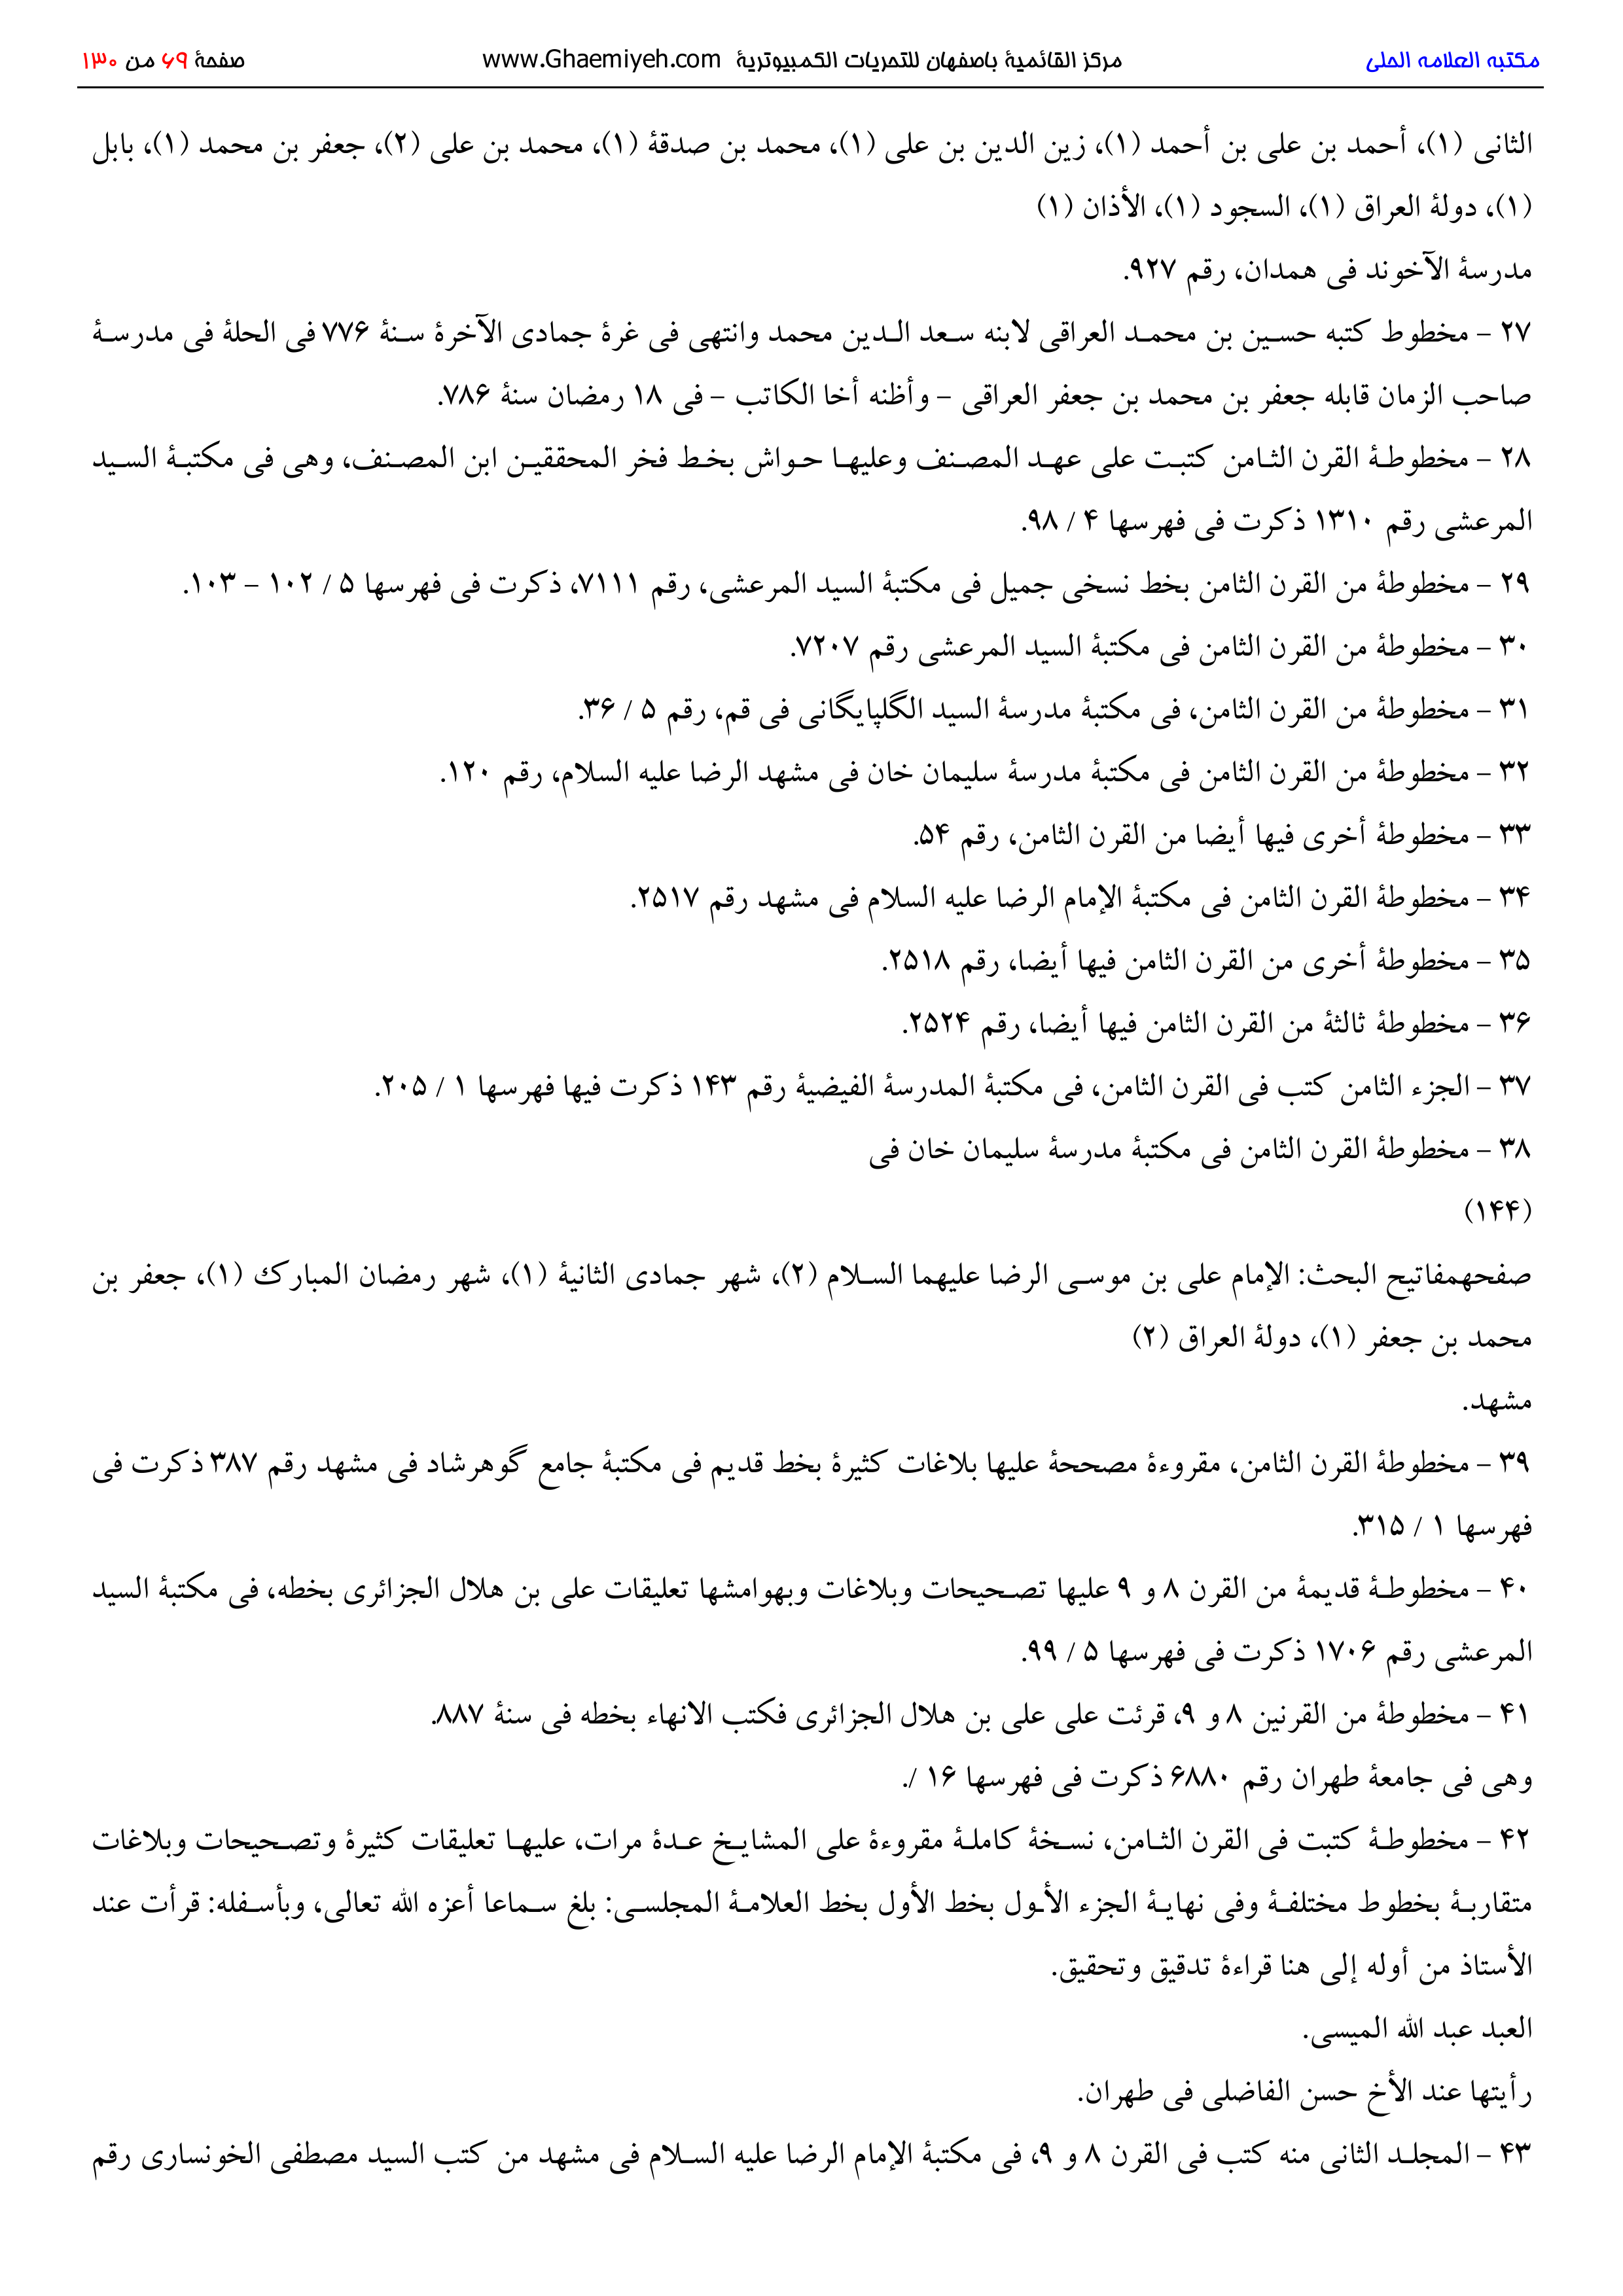 مكتبه العلامه الحلی مركز القائمیۀ باصفهان للتحریات الكمبیوتریۀ www.Ghaemiyeh.com صفحۀ ۶۹ من ۱۳۰
الثانی (۱)، أحمد بن علی بن أحمد (۱)، زین الدین بن علی (۱)، محمد بن صدقۀ (۱)، محمد بن علی (۲)، جعفر بن محمد (۱)، بابل
(۱)، دولۀ العراق (۱)، السجود (۱)، الأذان (۱)
مدرسۀ الآخوند فی همدان، رقم ۹۲۷.
۲۷ – مخطوط كتبه حسین بن محمد العراقی لابنه سعد الدین محمد وانتهی فی غرۀ جمادی الآخرۀ سنۀ ۷۷۶ فی الحلۀ فی مدرسۀ
صاحب الزمان قابله جعفر بن محمد بن جعفر العراقی – وأظنه أخا الكاتب – فی ۱۸ رمضان سنۀ ۷۸۶.
۲۸ – مخطوطۀ القرن الثامن كتبت علی عهد المصنف وعلیها حواش بخط فخر المحققین ابن المصنف، وهی فی مكتبۀ السید
المرعشی رقم ۱۳۱۰ ذكرت فی فهرسها ۴ / ۹۸.
۲۹ – مخطوطۀ من القرن الثامن بخط نسخی جمیل فی مكتبۀ السید المرعشی، رقم ۷۱۱۱، ذكرت فی فهرسها ۵ / ۱۰۲ – ۱۰۳.
۳۰ – مخطوطۀ من القرن الثامن فی مكتبۀ السید المرعشی رقم ۷۲۰۷.
۳۱ – مخطوطۀ من القرن الثامن، فی مكتبۀ مدرسۀ السید الگلپایگانی فی قم، رقم ۵ / ۳۶.
۳۲ – مخطوطۀ من القرن الثامن فی مكتبۀ مدرسۀ سلیمان خان فی مشهد الرضا علیه السلام، رقم ۱۲۰.
۳۳ – مخطوطۀ أخری فیها أیضا من القرن الثامن، رقم ۵۴.
۳۴ – مخطوطۀ القرن الثامن فی مكتبۀ الإمام الرضا علیه السلام فی مشهد رقم ۲۵۱۷.
۳۵ – مخطوطۀ أخری من القرن الثامن فیها أیضا، رقم ۲۵۱۸.
۳۶ – مخطوطۀ ثالثۀ من القرن الثامن فیها أیضا، رقم ۲۵۲۴.
۳۷ – الجزء الثامن كتب فی القرن الثامن، فی مكتبۀ المدرسۀ الفیضیۀ رقم ۱۴۳ ذكرت فیها فهرسها ۱ / ۲۰۵.
۳۸ – مخطوطۀ القرن الثامن فی مكتبۀ مدرسۀ سلیمان خان فی
(۱۴۴)
صفحهمفاتیح البحث: الإمام علی بن موسی الرضا علیهما السلام (۲)، شهر جمادی الثانیۀ (۱)، شهر رمضان المبارك (۱)، جعفر بن
محمد بن جعفر (۱)، دولۀ العراق (۲)
مشهد.
۳۹ – مخطوطۀ القرن الثامن، مقروءۀ مصححۀ علیها بلاغات كثیرۀ بخط قدیم فی مكتبۀ جامع گوهرشاد فی مشهد رقم ۳۸۷ ذكرت فی
فهرسها ۱ / ۳۱۵.
۴۰ – مخطوطۀ قدیمۀ من القرن ۸ و ۹ علیها تصحیحات وبلاغات وبهوامشها تعلیقات علی بن هلال الجزائری بخطه، فی مكتبۀ السید
المرعشی رقم ۱۷۰۶ ذكرت فی فهرسها ۵ / ۹۹.
۴۱ – مخطوطۀ من القرنین ۸ و ۹، قرئت علی علی بن هلال الجزائری فكتب الانهاء بخطه فی سنۀ ۸۸۷.
وهی فی جامعۀ طهران رقم ۶۸۸۰ ذكرت فی فهرسها ۱۶ /.
۴۲ – مخطوطۀ كتبت فی القرن الثامن، نسخۀ كاملۀ مقروءۀ علی المشایخ عدۀ مرات، علیها تعلیقات كثیرۀ وتصحیحات وبلاغات
متقاربۀ بخطوط مختلفۀ وفی نهایۀ الجزء الأول بخط الأول بخط العلامۀ المجلسی: بلغ سماعا أعزه الله تعالی، وبأسفله: قرأت عند
الأستاذ من أوله إلی هنا قراءۀ تدقیق وتحقیق.
العبد عبد الله المیسی.
رأیتها عند الأخ حسن الفاضلی فی طهران.
۴۳ – المجلد الثانی منه كتب فی القرن ۸ و ۹، فی مكتبۀ الإمام الرضا علیه السلام فی مشهد من كتب السید مصطفی الخونساری رقم